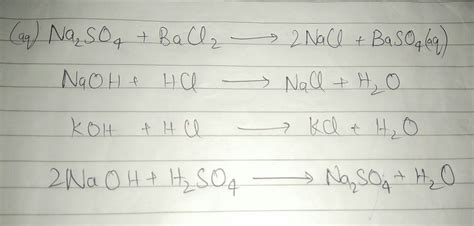 (aq) Na₂SO₄ + BaCl₂ ⟶ 2NaCl + BaSO₄(aq)
NaOH + HCl ⟶ NaCl + H₂O
KOH + HCl ⟶ KCl + H₂O
2NaOH + H₂SO₄ ⟶ Na₂SO₄ + H₂O